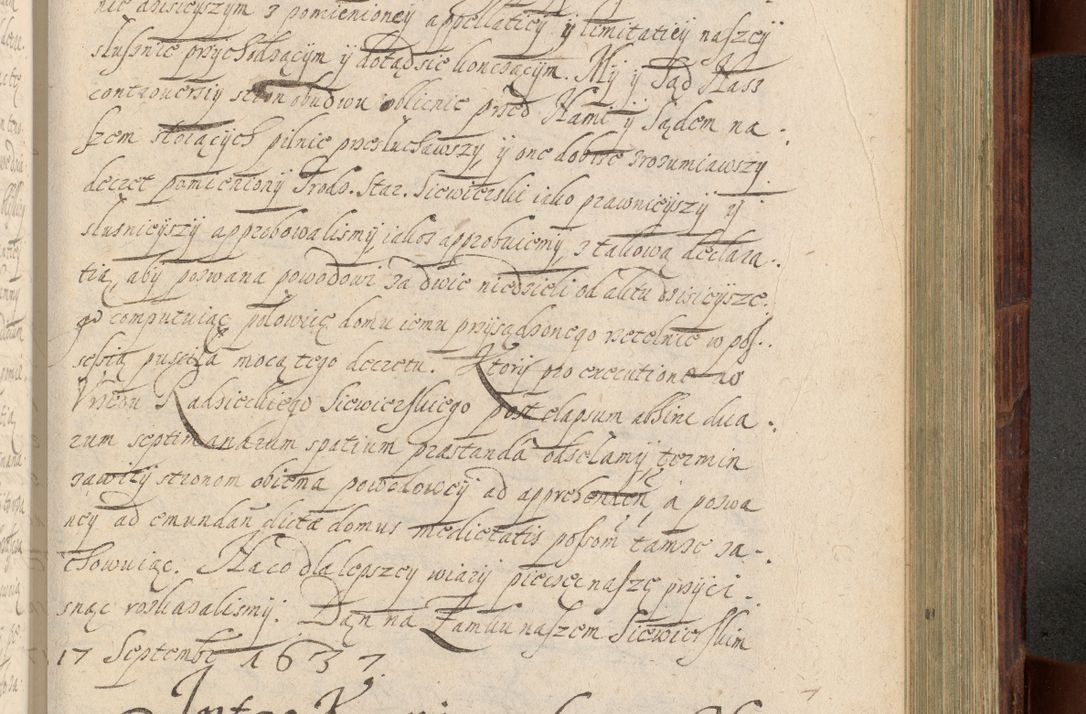 nie dzisieyszym z pomienioney appellatiey ÿ limitatiey naszey
słusznie przychodzącÿm ÿ dotądsie konczącÿm. Mÿ ÿ Sąd Nasz
controuersiy stron obudwu oblicnie przed Nami ÿ Sądem na
szem stoiącÿch pilnie przesłuchawszÿ, ÿ one dobrze zrozumiawszÿ
decret pomieniony Grodo. Star. Siewierski iako prawnieyszÿ ÿ
słusnieyszÿ approbowalismÿ iakoz approbuiemÿ, z takową declara
tią, aby pozwana powodowi za dwie niedzieli od aktu dzisieysze
go computuiąc połowicę domu iemu przysądzonego rzetelnie w pos
sessią pusciła mocą tego decretu. Ktorÿ pro executione do
Vrzędu Radzieckiego Siewierskiego post elapsum abhinc dua
rum septimanarum spatium præstanda odsełamÿ termin
zawitÿ stronom obiema powodowey ad apprehenden, a pozwa
ney ad emundan dictæ domus medietatis posson tamze za
chowuiąc. Naco dla lepszey wiarÿ pieczęc naszę przÿci
snąc roskazalismÿ. Dan na Zamku naszem Siewierskim
17 Septembr 1637.